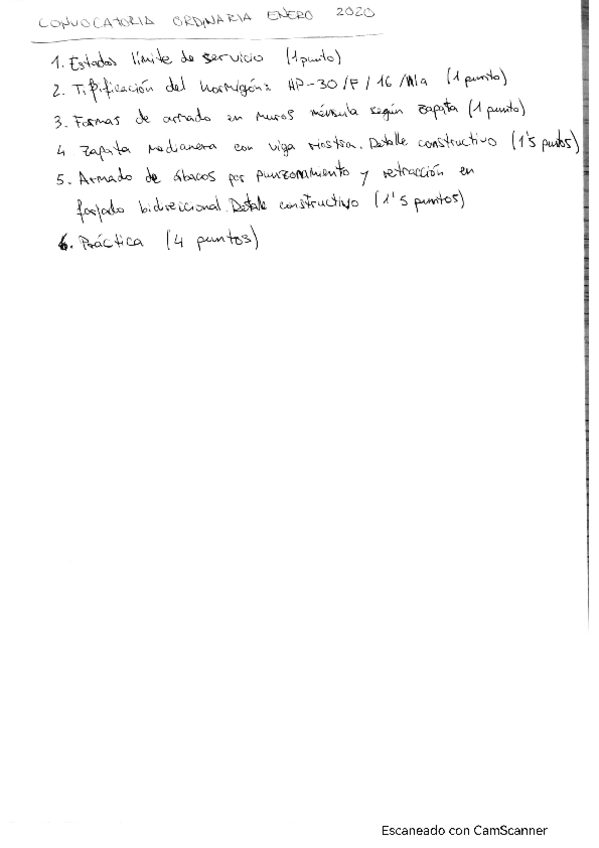 CONVOCATORIA ORDINARIA ENERO 2020
1. Estados límite de servicio (1 punto)
2. Tipificación del hormigón: HP-30/F/16/IIIa (1 punto)
3. Formas de armado en muros ménsula según zapata (1 punto)
4. Zapata medianera con viga riostra. Detalle constructivo (1'5 puntos)
5. Armado de ábacos por punzonamiento y retracción en
forjado bidireccional. Detalle constructivo (1'5 puntos)
6. Práctica (4 puntos)
Escaneado con CamScanner